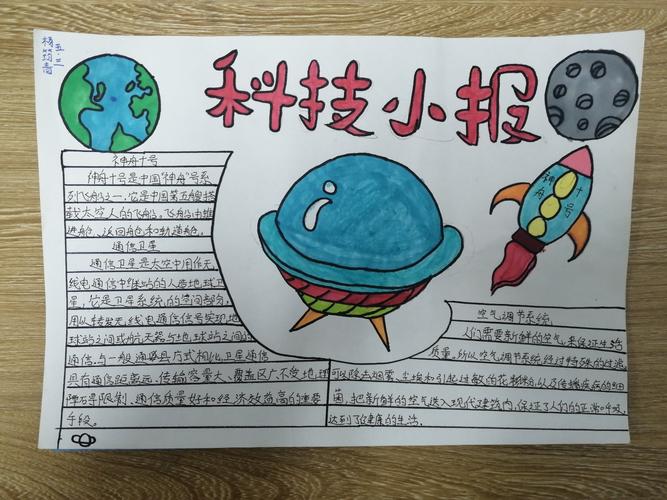 科技小报
五·三
神舟十号
神舟十号是中国"神舟"号系
列飞船之一,它是中国第五艘搭
载太空人的飞船。飞船由推
进舱、返回舱和轨道舱。
通信卫星
通信卫星是太空中用作无
线电通信中继站的人造地球卫
星,它是卫星系统的空间部分,
用以转发无线电通信信号实现地
球站之间或航天器与地球站之间的
通信。与一般通信方式相比,卫星通信
具有通信距离远、传输容量大、覆盖区广不受地理
障碍限制、通信质量好和经济效益高的重要
手段。
神舟十号
空气调节系统
人们需要新鲜的空气来保证生活
质量,所以空气调节系统经过特殊的过滤,
可以除去烟雾、尘埃和引起过敏的花粉粒以及传播疾病的细
菌,把新鲜的空气送入现代建筑内,保证了人们的正常呼吸,
达到了健康的生活。